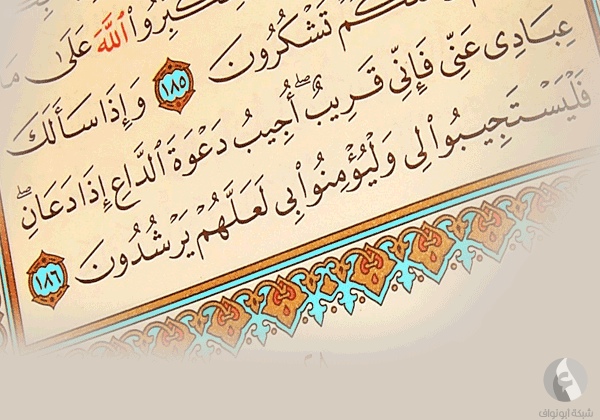 وَلِتُكَبِّرُوا۟ ٱللَّهَ عَلَىٰ مَا
وَلَعَلَّكُمْ تَشْكُرُونَ ١٨٥ وَإِذَا سَأَلَكَ
عِبَادِى عَنِّى فَإِنِّى قَرِيبٌ ۖ أُجِيبُ دَعْوَةَ ٱلدَّاعِ إِذَا دَعَانِ ۖ
فَلْيَسْتَجِيبُوا۟ لِى وَلْيُؤْمِنُوا۟ بِى لَعَلَّهُمْ يَرْشُدُونَ ١٨٦
شبكة أبو نواف